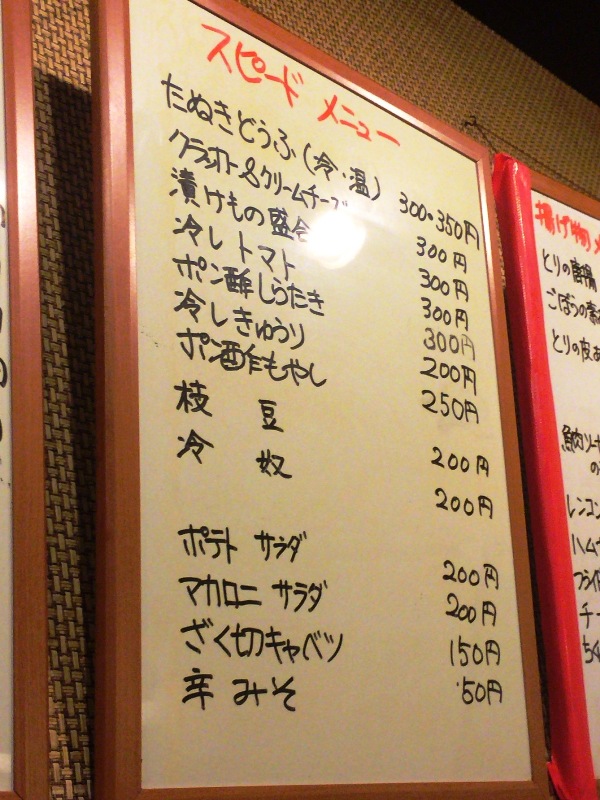 スピード メニュー
たぬきどうふ(冷・温) 300・350円
クラッカー&クリームチーズ 300円
漬けもの盛合 300円
冷しトマト 300円
ポン酢しらたき 300円
冷しきゅうり 200円
ポン酢もやし 250円
枝豆 200円
冷奴 200円
ポテト サラダ 200円
マカロニ サラダ 200円
ざく切キャベツ 150円
辛みそ 50円
揚げ物
とりの唐揚
ごぼうの
とりの皮
魚肉ソー
の
レンコン
ハム
フライ
チー
ちく